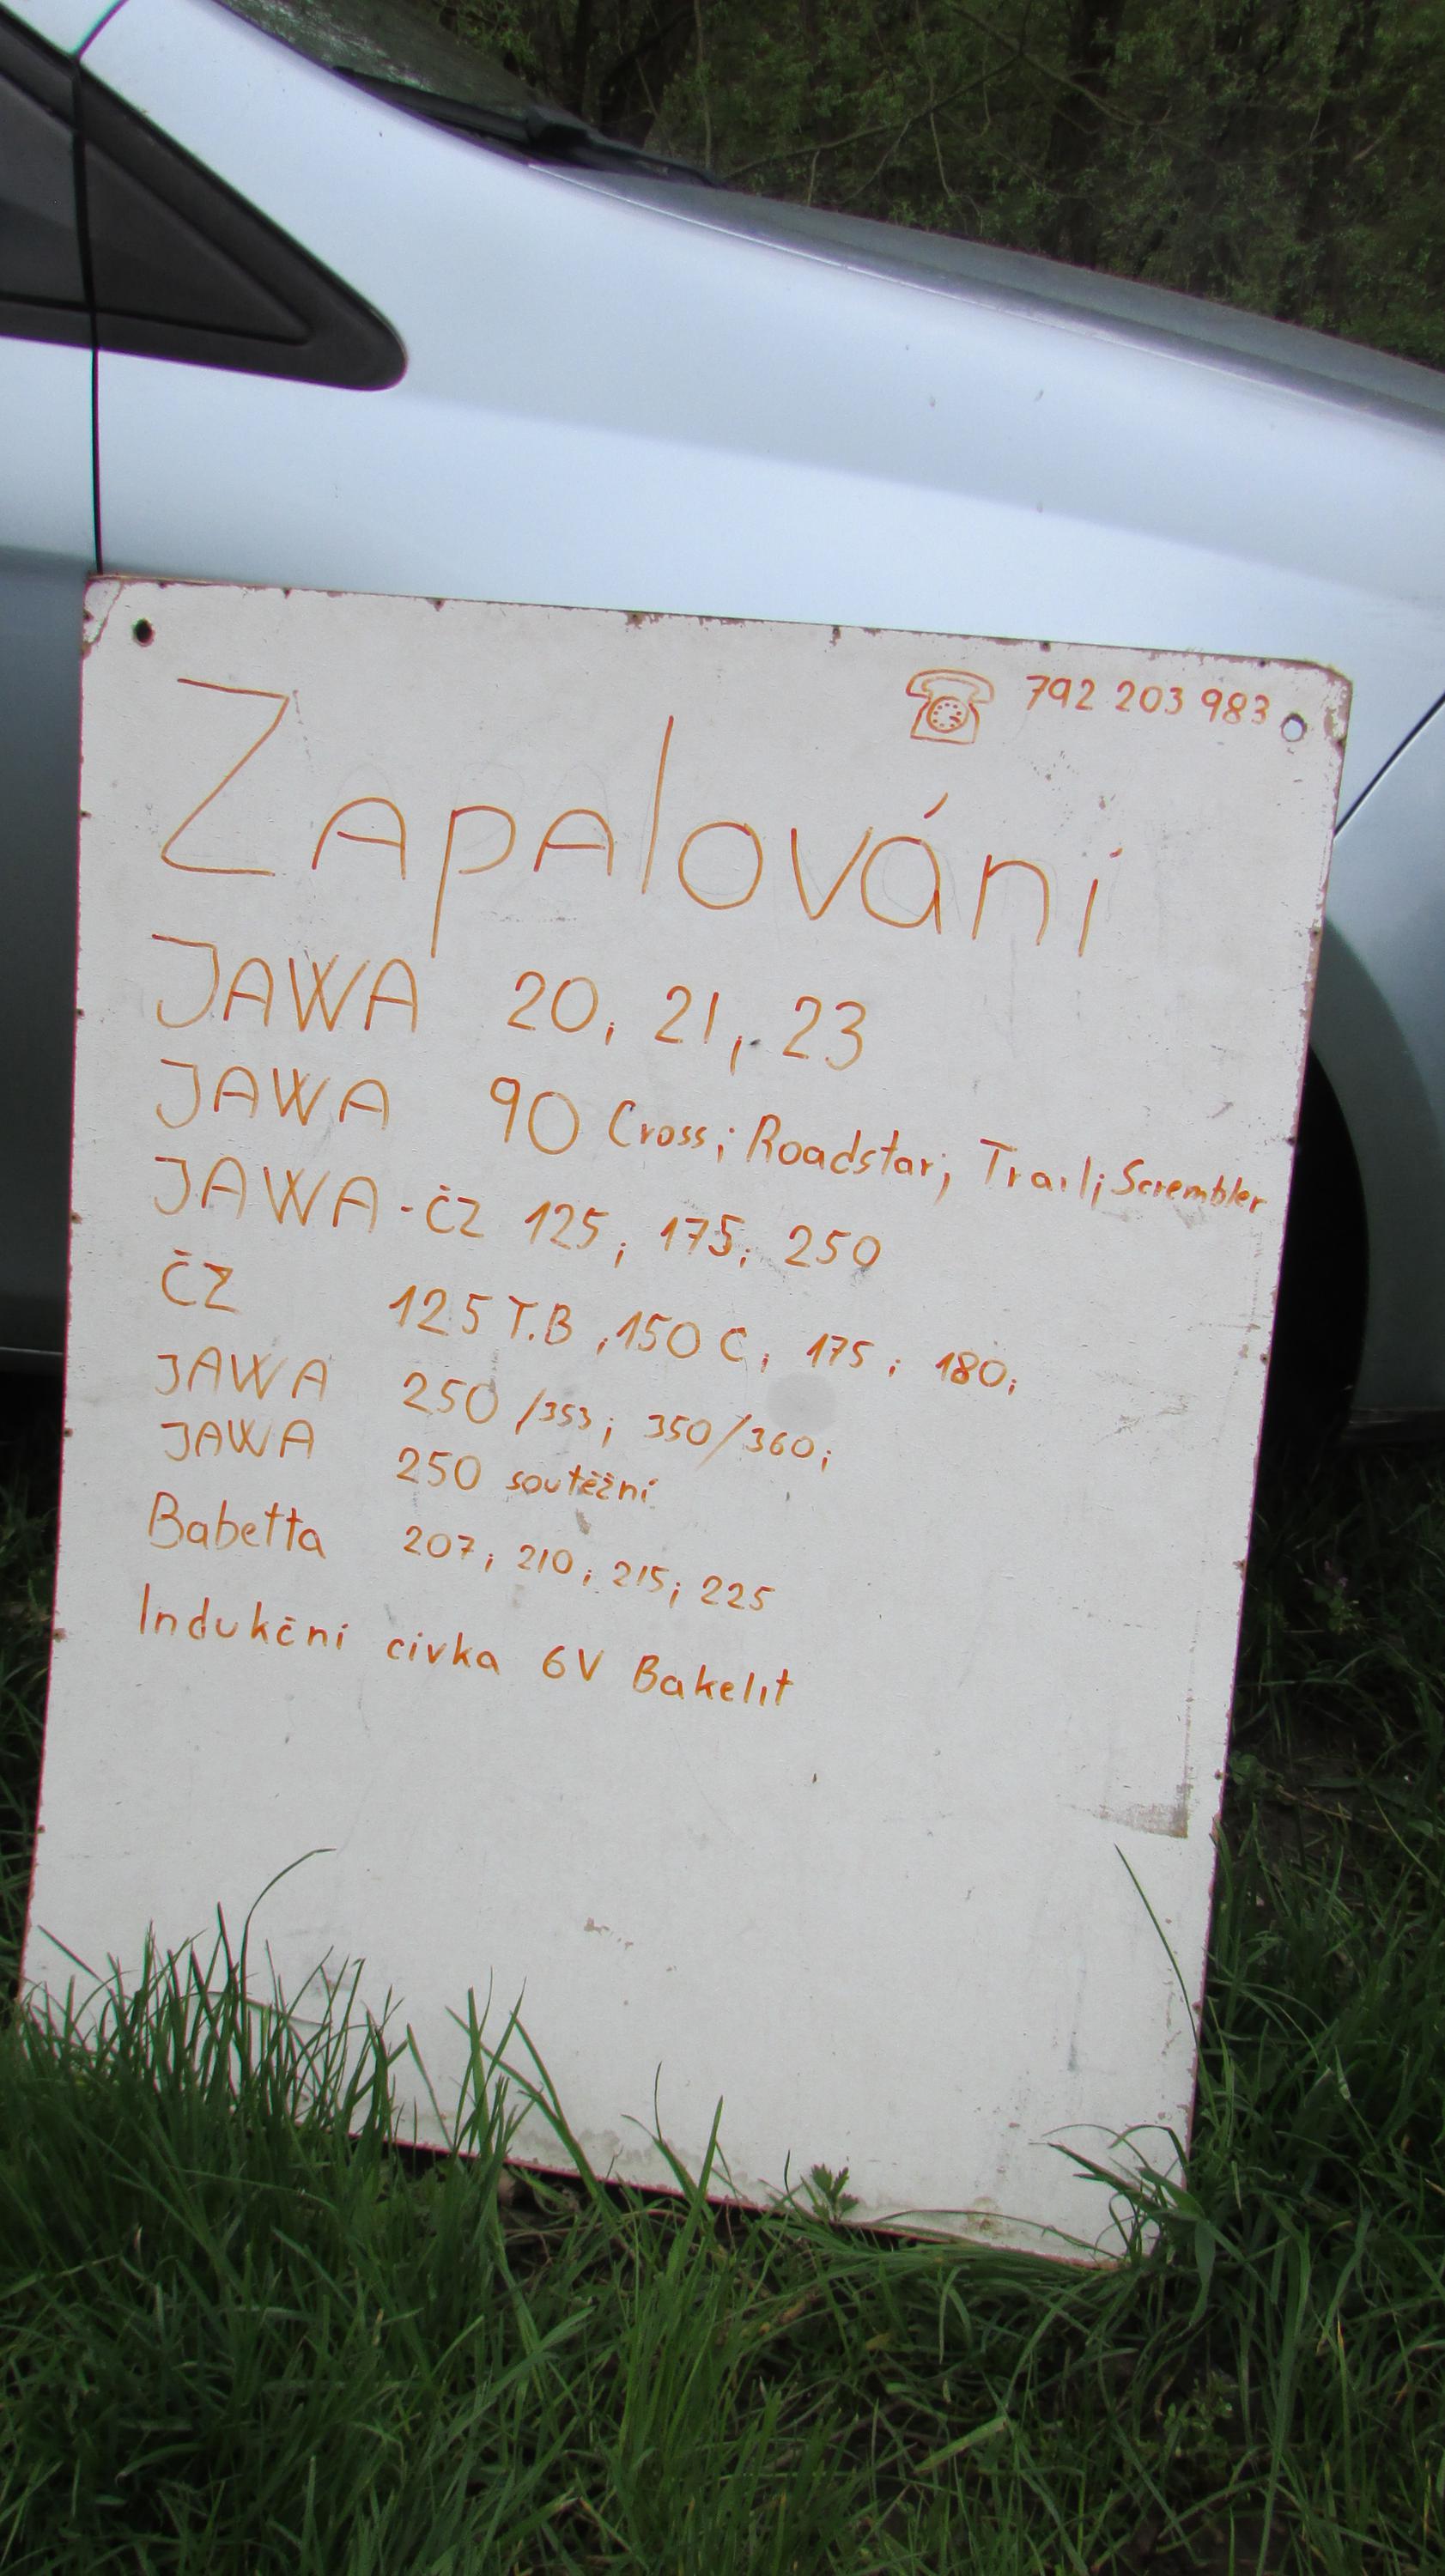 792 203 983
Zapalování
JAWA 20, 21, 23
JAWA 90 Cross; Roadstar; Trail; Screm​bler
JAWA-ČZ 125; 175; 250
ČZ 125 T.B; 150 C; 175; 180;
JAWA 250/353; 350/360;
JAWA 250 soutěžní
Babetta 207; 210; 215; 225
Indukční civka 6V Bakelit